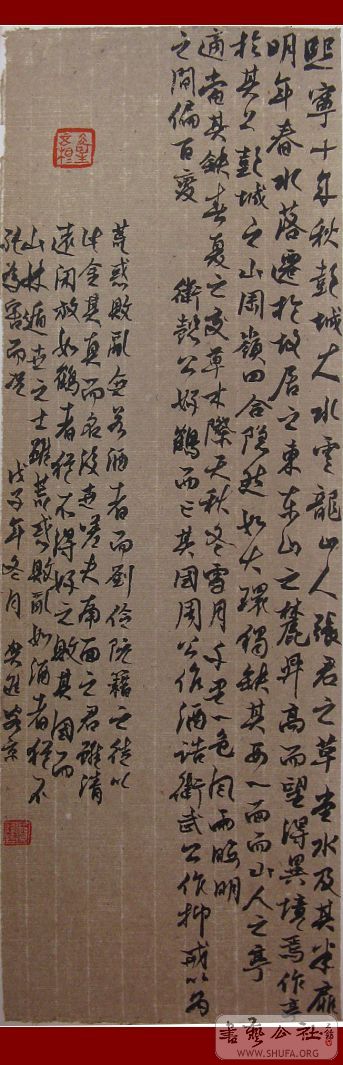 熙寧十年秋彭城大水雲龍山人張君之草堂水及其半扉
明年春水落遷於故居之東東山之麓昇高而望得異境焉作亭
於其上彭城之山岡嶺四合隱然如大環獨缺其西一面而山人之亭
適當其缺春夏之交草木際天秋冬雪月千里一色風雨晦明
之間俯百變 衛懿公好鶴而亡其國周公作酒誥衛武公作抑戒以為
荒惑敗亂無若酒者而劉伶阮籍之徒以
此全其真而名後世嗟夫南面之君雖清
遠閑放如鶴者猶不得好之敗其國而
山林遁世之士雖荒惑敗亂如酒者猶不
能為害而況 戊子年冬月 京
書藝公社
WWW.SHUFA.ORG